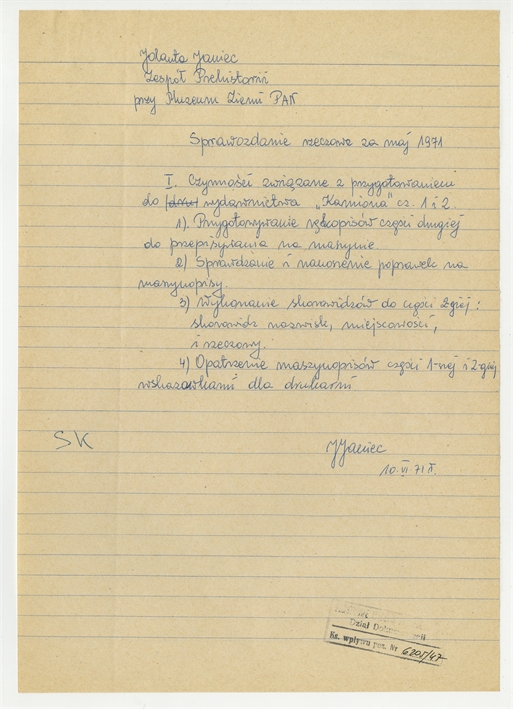 Jolanta Janiec
Zespół Prehistorii
przy Muzeum Ziemi PAN
Sprawozdanie rzeczowe za maj 1971
I. Czynności związane z przygotowaniem
do (dru) wydawnictwa „Kamiona" cz. 1 i 2.
1). Przygotowywanie rękopisów części drugiej
do przepisywania na maszynie
2) Sprawdzanie i nanoszenie poprawek na
maszynopisy.
3) Wykonanie skorowidzów do części 2-giej:
skorowidz nazwisk, miejscowości,
i rzeczowy.
4) Opatrzenie maszynopisów części 1-szej i 2-giej
wskazówkami dla drukarni
SK
JJaniec
10 VI 71 r.
Dział
Ks. wpływu poz. Nr 6205/47